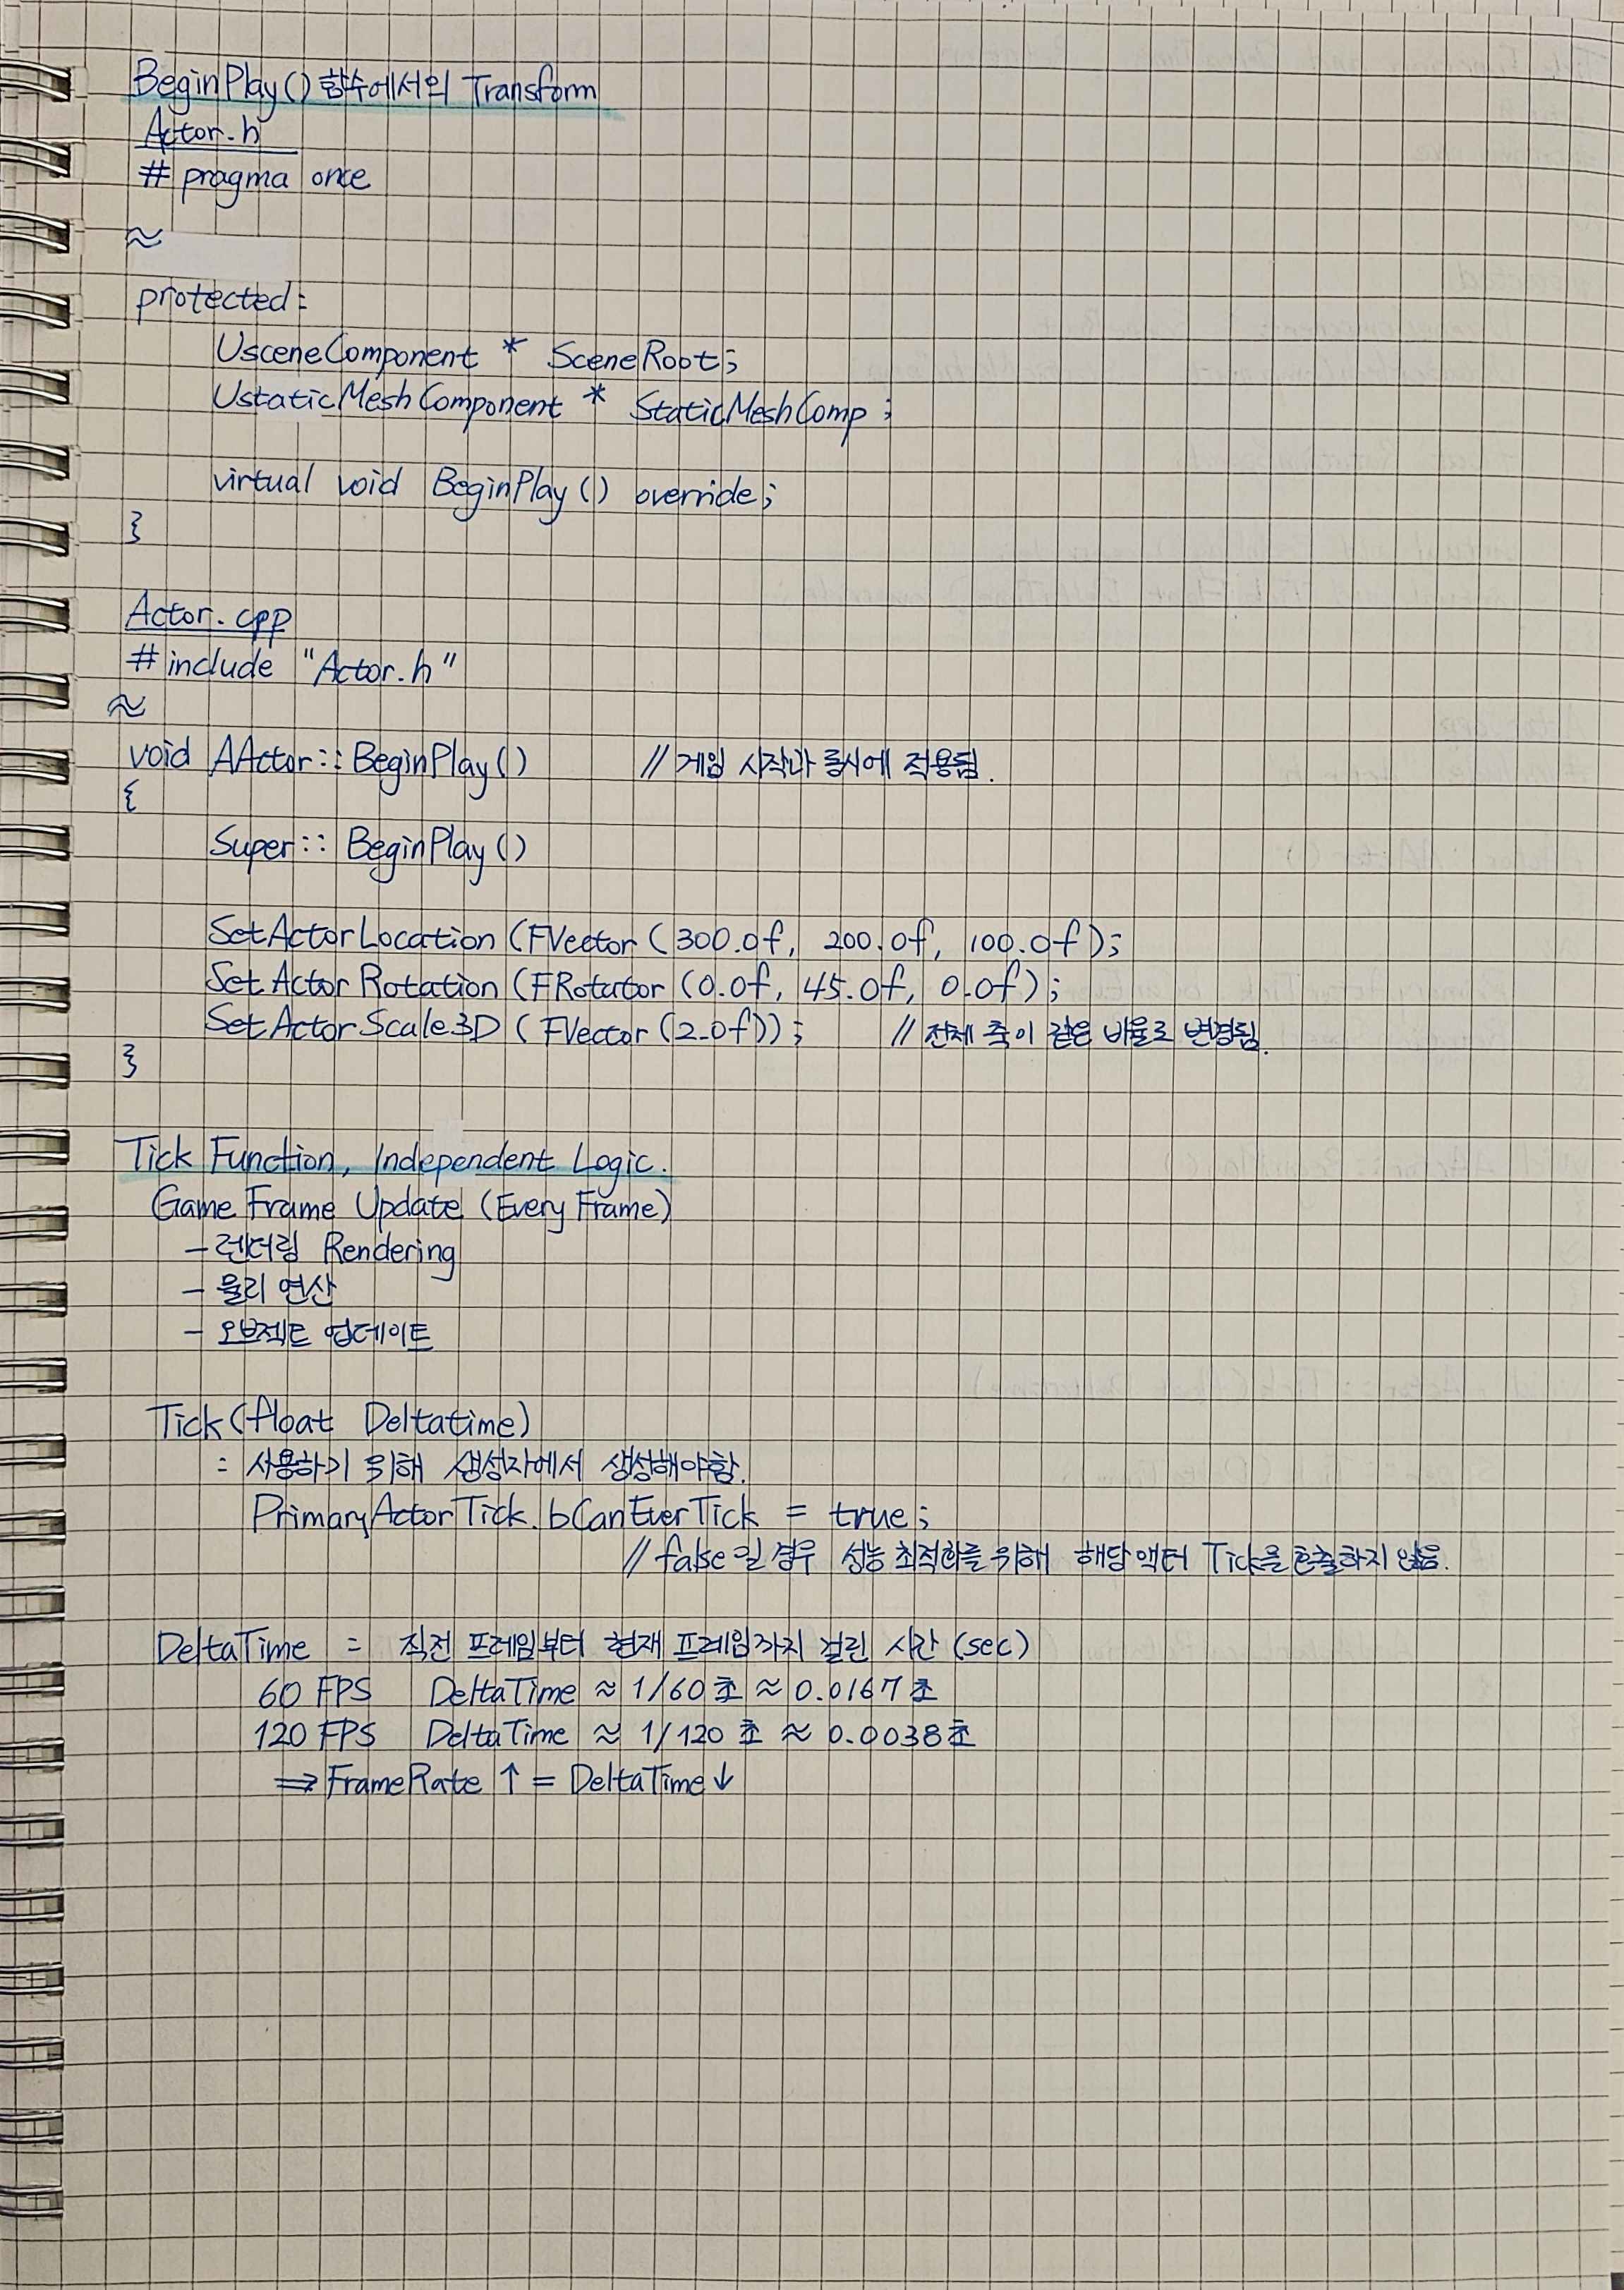 BeginPlay() 함수에서의 Transform
Actor.h
# pragma once
≈
protected:
UsceneComponent * SceneRoot;
UstaticMeshComponent * StaticMeshComp;
virtual void BeginPlay() override;
}
Actor.cpp
# include "Actor.h"
≈
void AActor::BeginPlay() // 게임 시작과 동시에 적용됨.
{
Super:: BeginPlay()
SetActorLocation (FVector (300.0f, 200.0f, 100.0f);
Set Actor Rotation (FRotator (0.0f, 45.0f, 0.0f);
SetActorScale3D (FVector (2.0f)); // 전체 축이 같은 비율로 변경됨.
}
Tick Function, Independent Logic.
Game Frame Update (Every Frame)
- 렌더링 Rendering
- 물리 연산
- 오브젝트 업데이트
Tick(float Deltatime)
: 사용하기 위해 생성자에서 생성해야함.
PrimaryActorTick.bCanEverTick = true;
// false일 경우 성능 최적화를 위해 해당 액터 Tick을 호출하지 않음.
DeltaTime = 직전 프레임부터 현재 프레임까지 걸린 시간 (sec)
60 FPS DeltaTime ≈ 1/60초 ≈ 0.0167초
120 FPS DeltaTime ≈ 1/120 초 ≈ 0.0038초
⇒ FrameRate ↑ = DeltaTime ↓